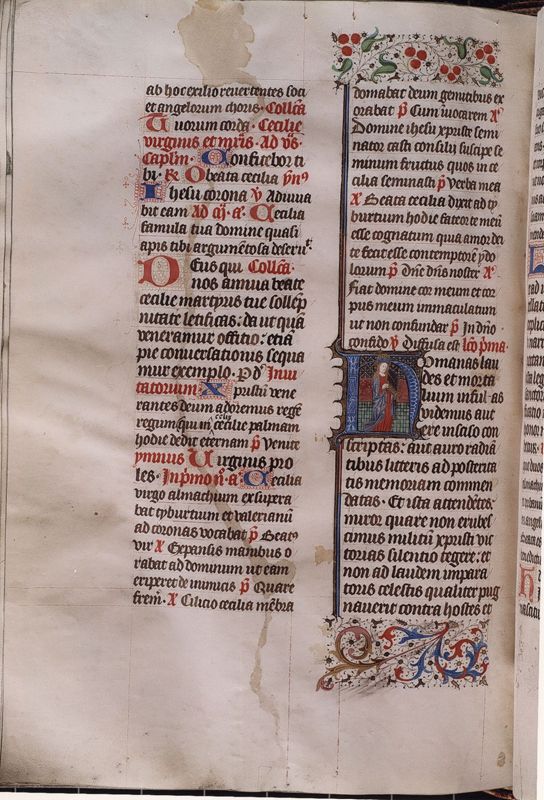 ab hoc exilio reuertentes soci
et angelorum choris. Collca
Quorum corda. Cecilie
virginis et mris. Ad vs.
caplm. Confitebor ti
bi. R O beata cecilia yns
Ihesu corona V Adiuua
bit eam Ad m. a. Cecilia
famula tua domine quasi
apis tibi argumentosa deseruit
Deus qui Collca.
nos annua beate
cecilie martyris tue sollep
nitate letificas: da ut quam
veneramur offitio: etiam
pie conuersationis sequa
mur exemplo. P d Inui
tatorium Xpristum vene
rantes deum adoremus regem
regum qui in cecilie palmam
hodie dedit eternam p Venite
ymnus Virginis pro
les. In pmo n. a Cecilia
virgo almachium exsupera
bat tyburtium et valerianum
ad coronas vocabat p Beatus
vir A Expansis manibus o
rabat ad dominum ut eam
eriperet de inimicis p Quare
frem. A Cilicio cecilia membra
domabat deum gemitibus ex
orabat p Cum inuocarem A
Domine ihesu xpriste semi
nator casti consilii suscipe se
minum fructus quos in ce
cilia seminasti p Verba mea
A Beata cecilia dixit ad ty
burtium hodie fateor te meum
esse cognatum quia amor dei
te fecit esse contemptorem ydo
lorum p dne dns noster A
Fiat domine cor meum et cor
pus meum immaculatum
ut non confundar p In dno
confido V Diffusa est lco pma.
Humanas lau
des et morta
lium infulas
videmus aut
ere insculpto con
scriptas: aut auro radian
tibus litteris ad posterita
tis memoriam commen
datas. Et ista attendentes:
miror quare non erubes
cimus militum xpristi vic
torias silentio tegere: et
non ad laudem impera
toris celestis qualiter pug
nauerit contra hostes et